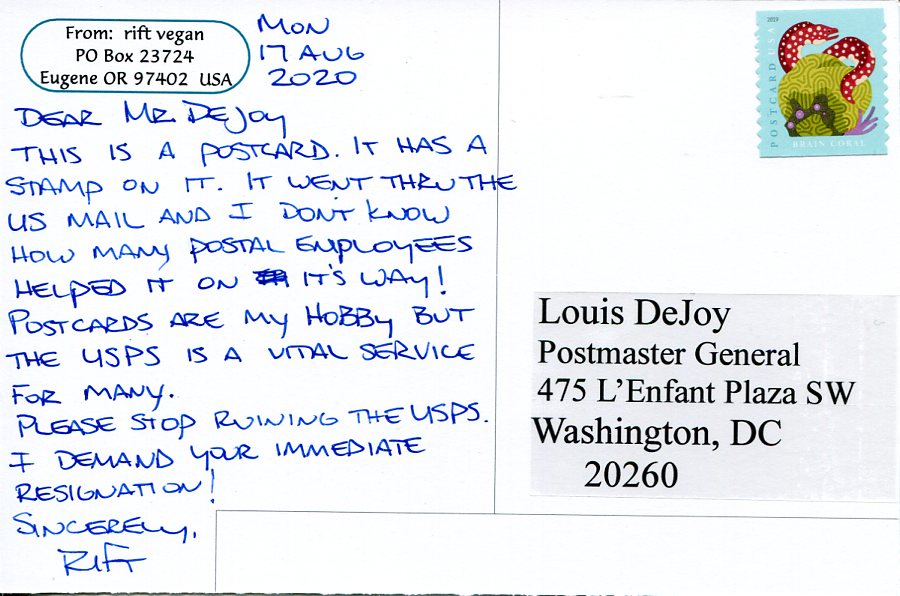 From: rift vegan
PO Box 23724
Eugene OR 97402 USA
MON
17 AUG
2020
DEAR MR. DEJOY
THIS IS A POSTCARD. IT HAS A
STAMP ON IT. IT WENT THRU THE
US MAIL AND I DON'T KNOW
HOW MANY POSTAL EMPLOYEES
HELPED IT ON IT'S WAY!
POSTCARDS ARE MY HOBBY BUT
THE USPS IS A VITAL SERVICE
FOR MANY.
PLEASE STOP RUINING THE USPS.
I DEMAND YOUR IMMEDIATE
RESIGNATION!
SINCERELY,
RIFT
2019
POSTCARD USA
BRAIN CORAL
Louis DeJoy
Postmaster General
475 L'Enfant Plaza SW
Washington, DC
20260